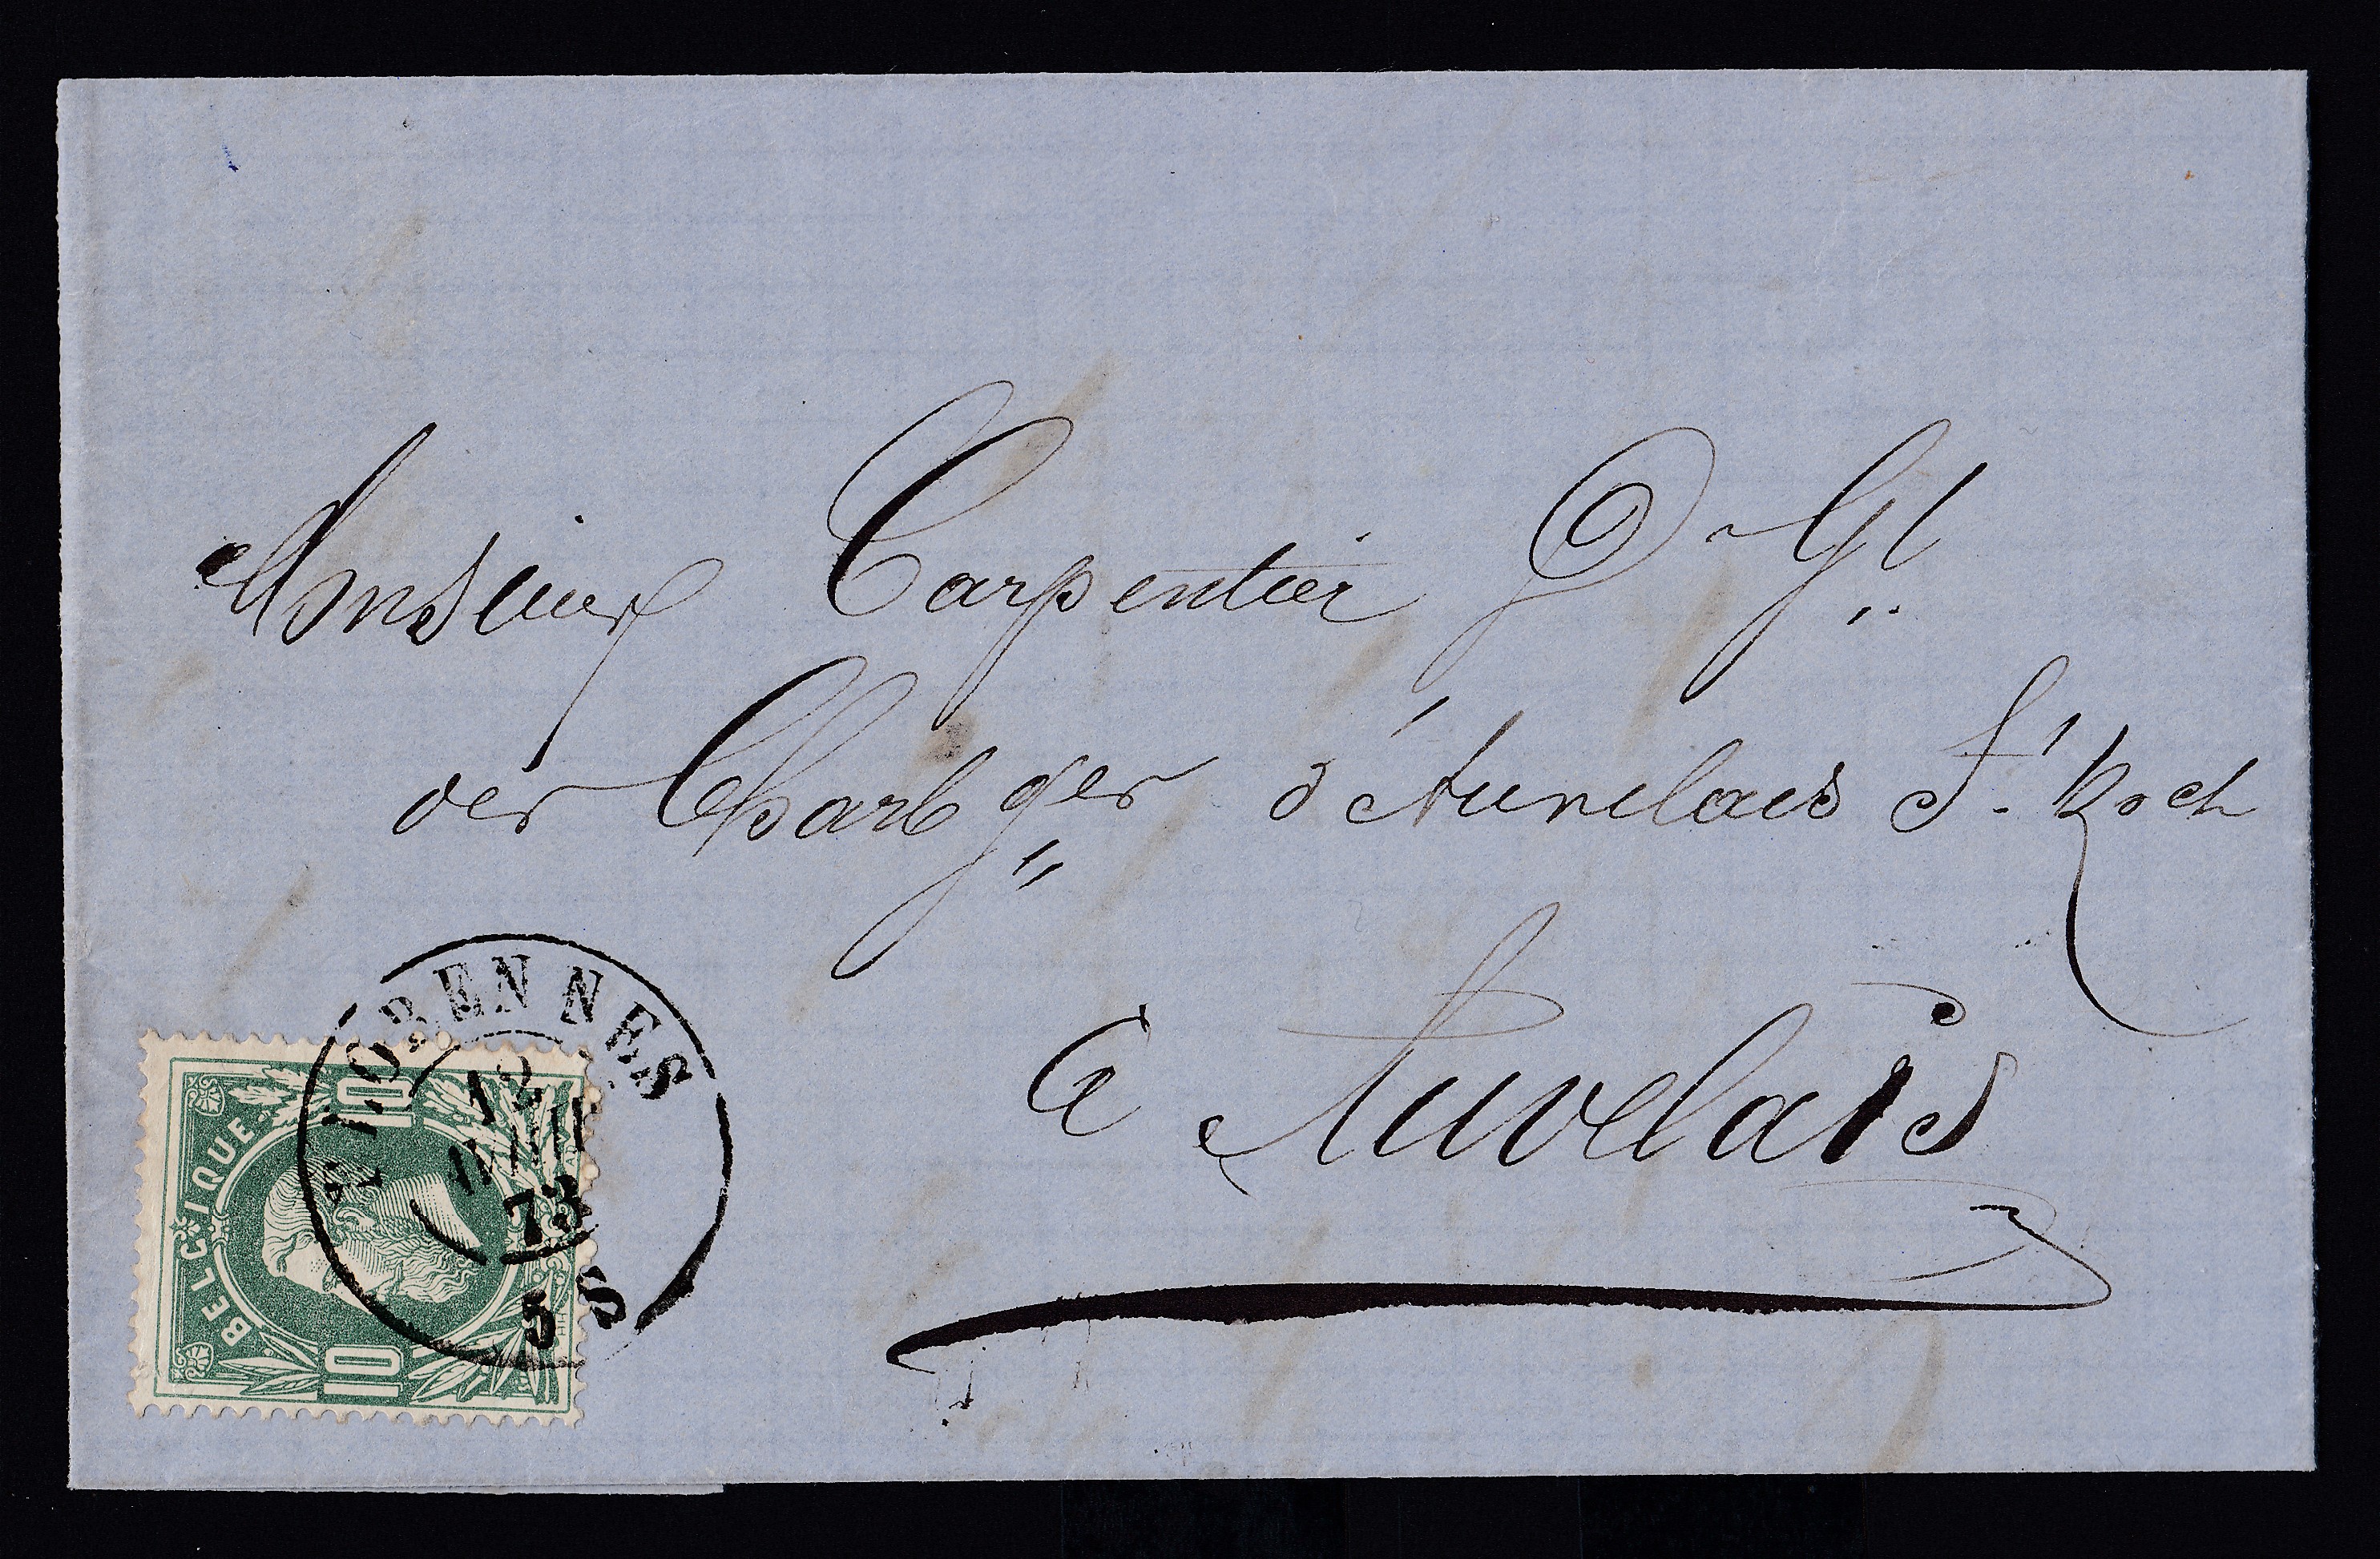 Monsieur Carpentier D. Gt
des Charbges d'Auvelais St. Roch
à Auvelais
FLORENNES
12
73
5 S
BELGIQUE
10
10